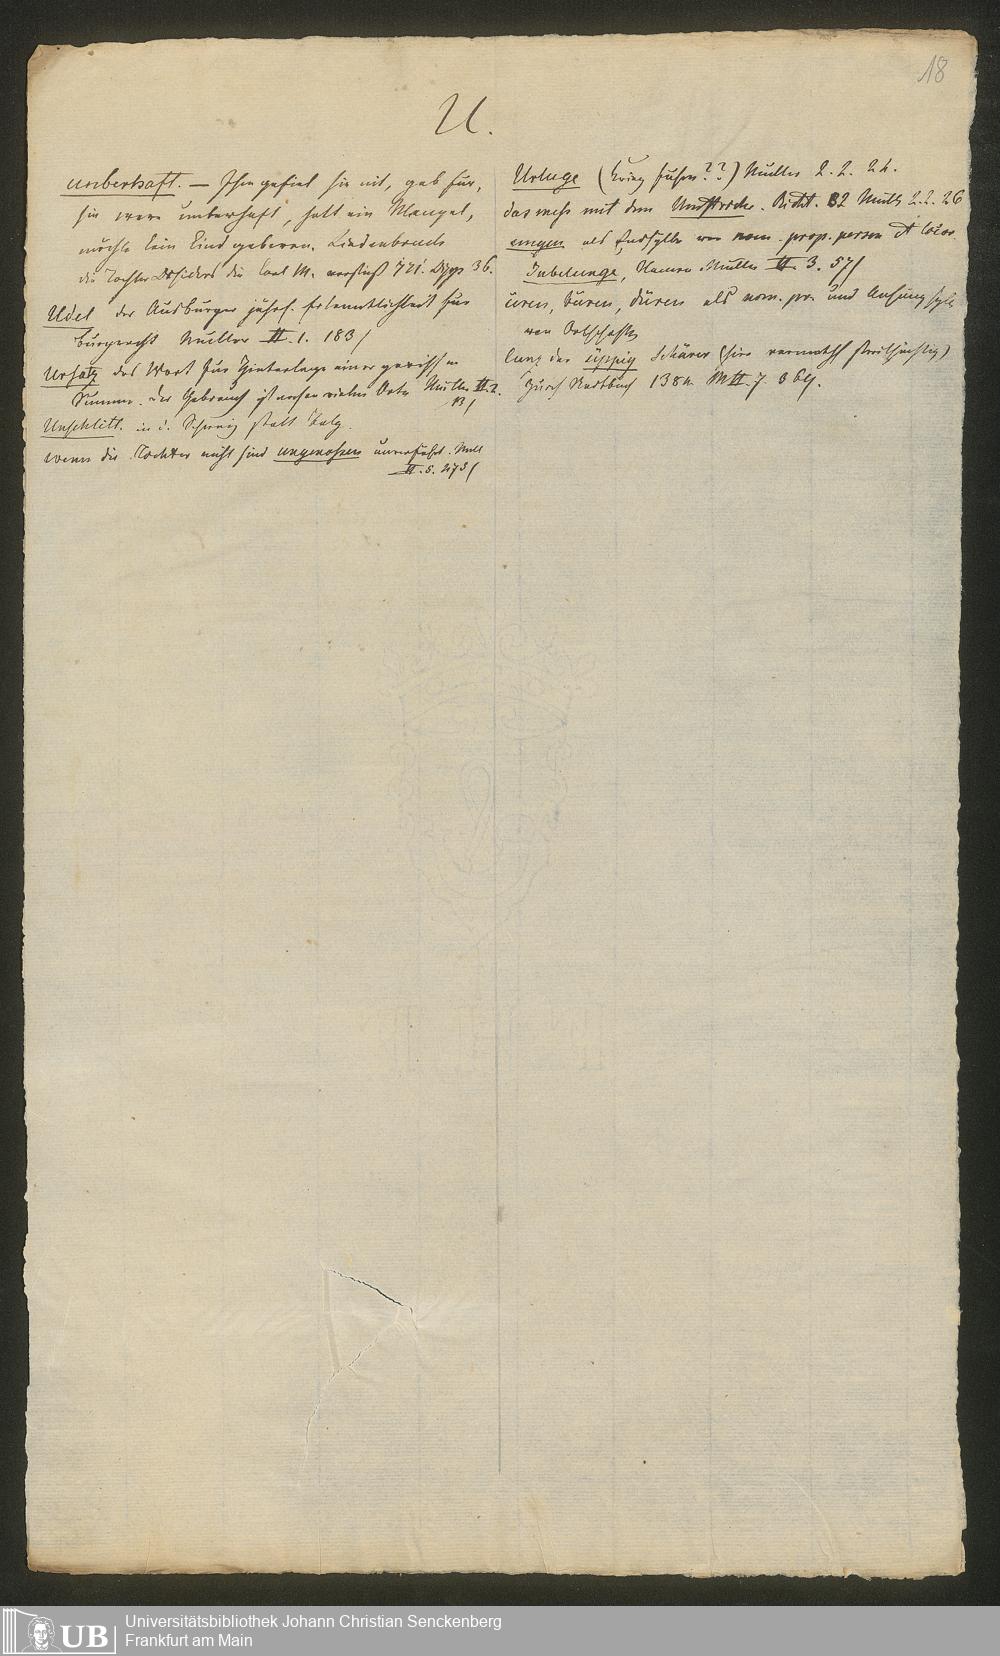 18
U.
unberhaft. — Ihm gefiel sie nit, gab für,
sie were unberhaft, hett ein Mangel,
möchte kein Kind geberen. Lindenbruch
die Tochter Desiders die Carl M. verstieß 771. 36.
Udel der Ausburger jährl. Erkenntlichkeit für
Burgrecht Muller II. 1. 183
Ursatz das Wort für Hinterlage einer gewissen
Summe. Der Gebrauch ist an vielen Orten Muller II. 2.
Unschlitt. in d. Schweiz statt Talg.
wenn die Tochter nicht sind ungenossen Mull
II. S. 273
Urluge (Krieg führen??) Muller 2. 2. 24.
das mehr mit dem 32 Mull 2. 2. 26
ungen als Endsylbe von nom. prop. person et locor
Muller II. 3. 57
üren, büren, düren als nom. pr. und Anhangsylb
von Ortschaften
lung der üppig Schärer (hier vermuthl streitsüchtig)
Zürch Stadtbuch 1384. M II. 7.
Universitätsbibliothek Johann Christian Senckenberg
Frankfurt am Main
UB